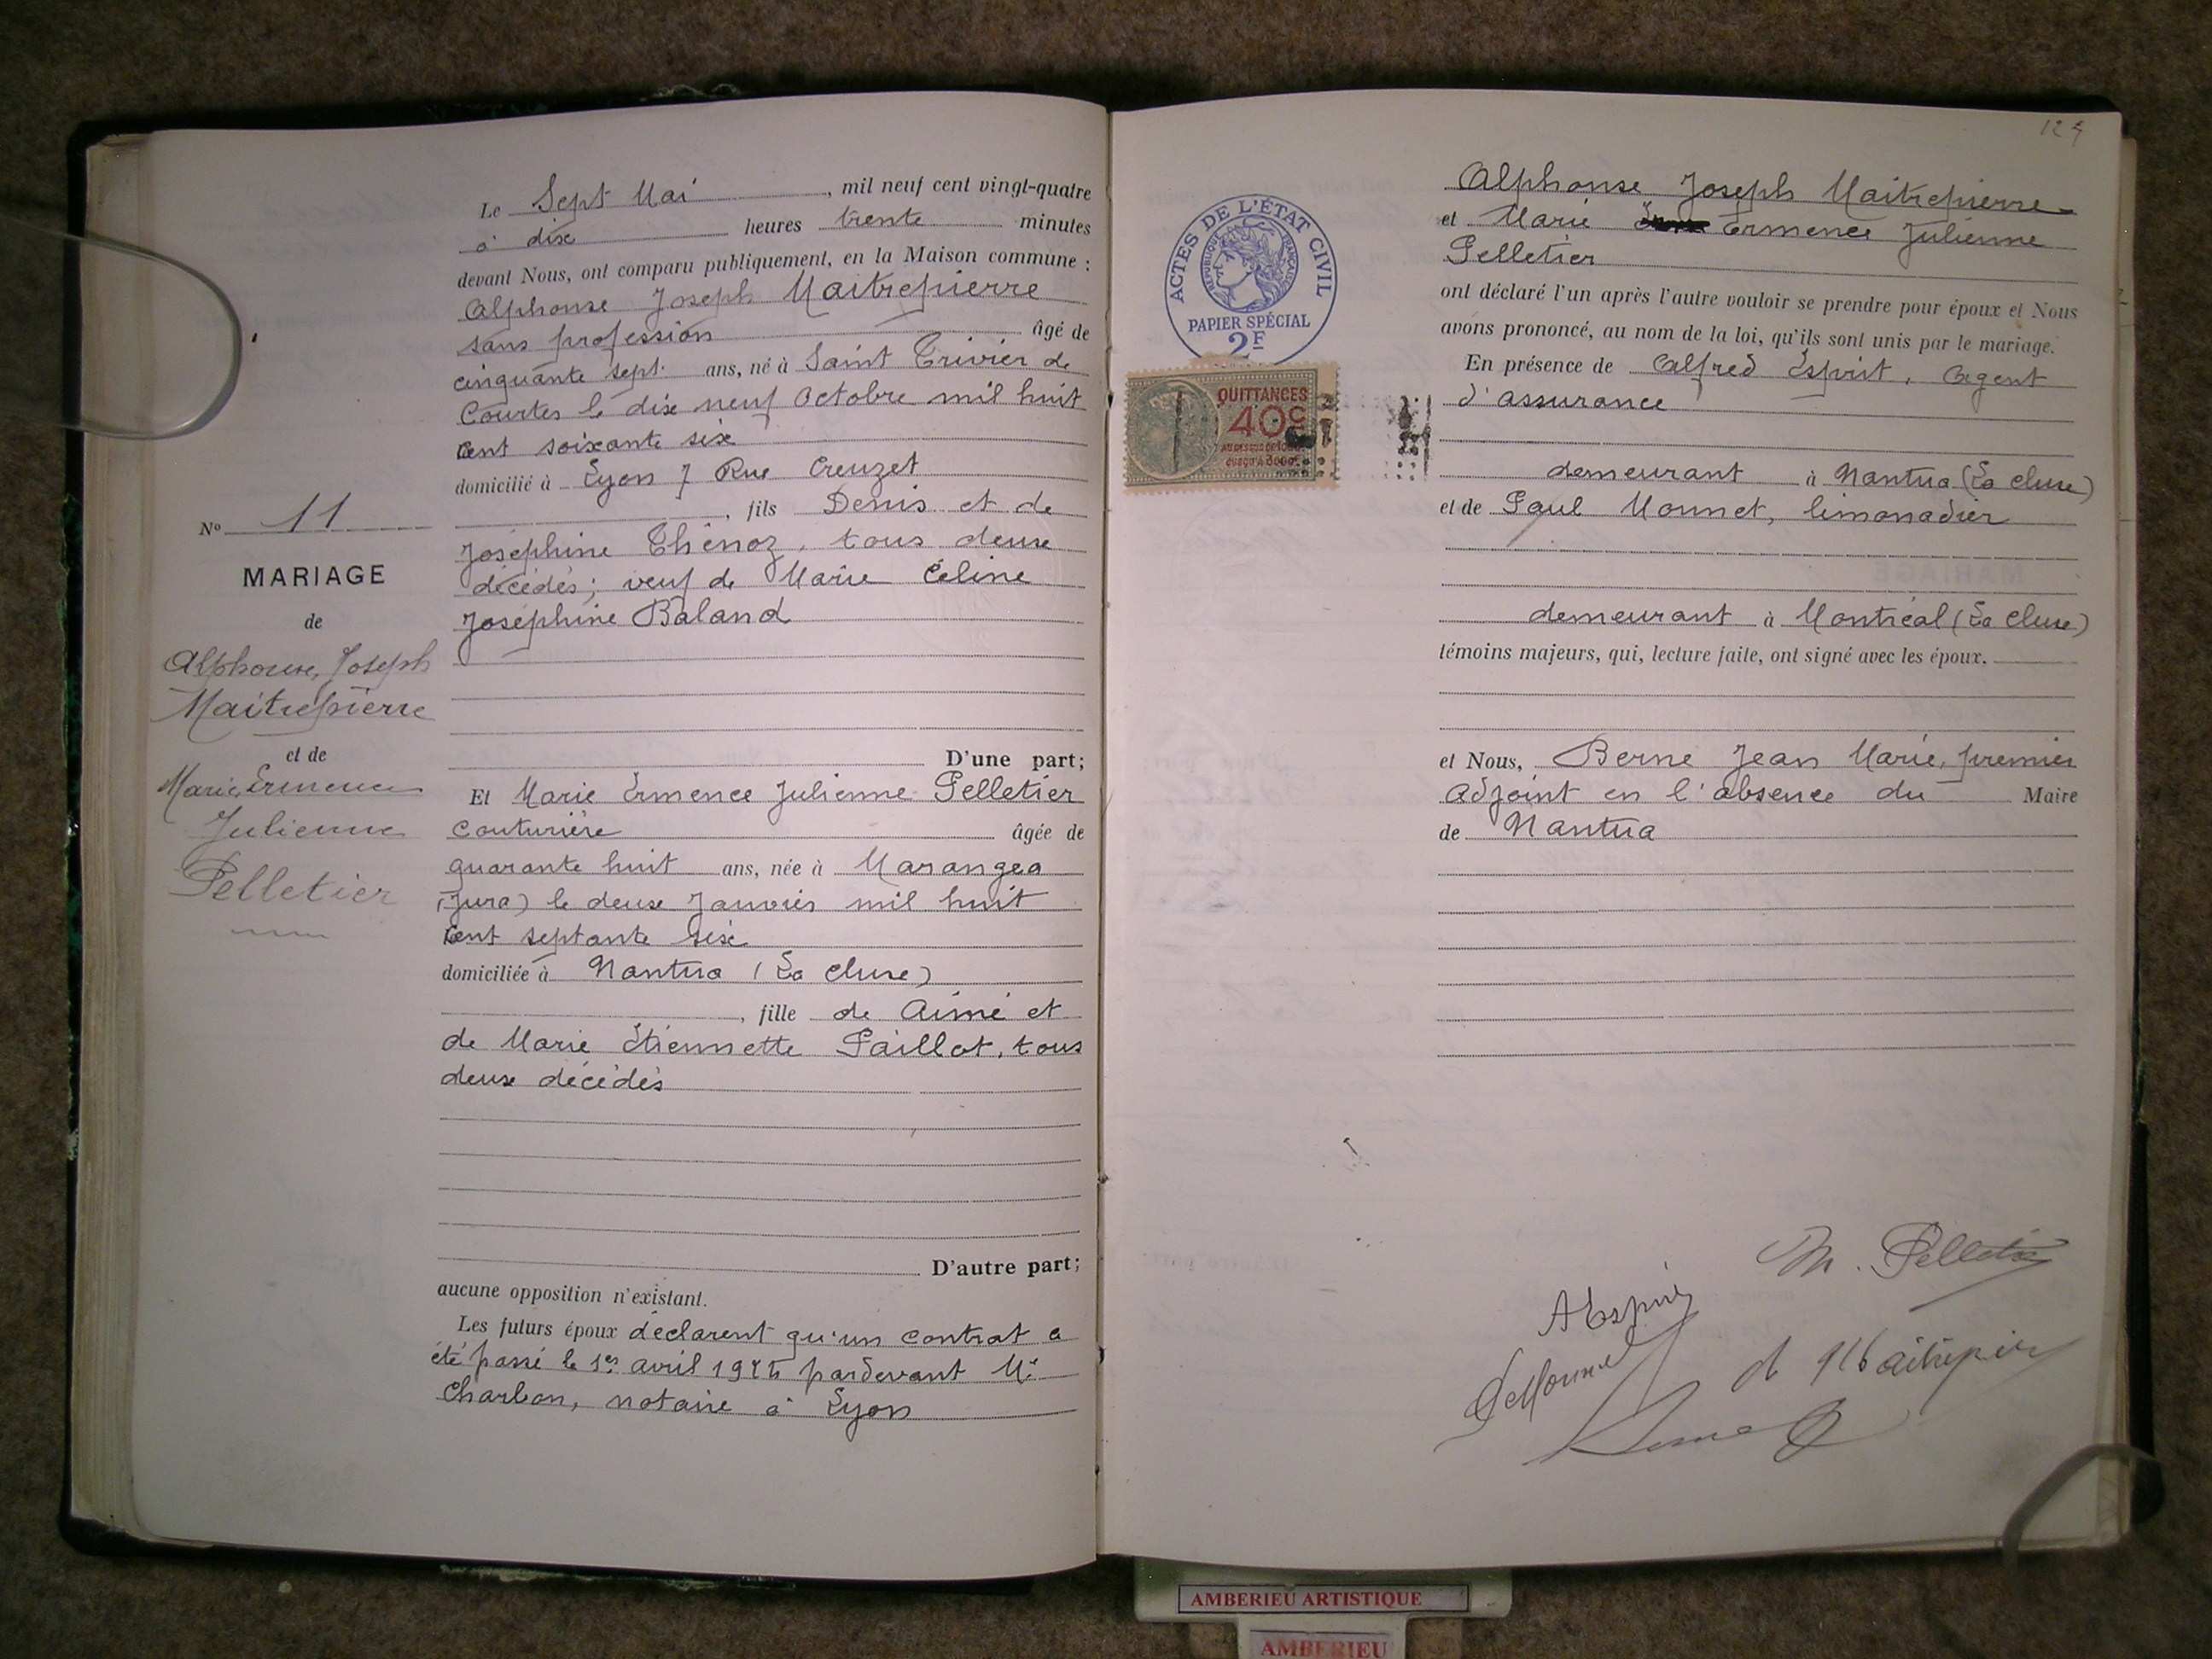 Le Sept Mai, mil neuf cent vingt-quatre
à dix heures trente minutes
devant Nous, ont comparu publiquement, en la Maison commune :
Alphonse Joseph Maitrepierre
sans profession âgé de
cinquante sept ans, né à Saint Trivier de
Courtes le dix neuf Octobre mil huit
cent soixante six
domicilié à Lyon 7 Rue Creuzet
, fils Denis et de
Joséphine Thénoz, tous deux
décédés; veuf de Marie Céline
Joséphine Baland
D'une part;
Et Marie Ermence Julienne Pelletier
couturière âgée de
quarante huit ans, née à Marangea
(Jura) le deux Janvier mil huit
cent septante six
domiciliée à Nantua (La Cluse)
, fille de Aimé et
de Marie Étiennette Paillot, tous
deux décédés
D'autre part;
aucune opposition n'existant.
Les futurs époux déclarent qu'un contrat a
été passé le 1er avril pardevant Me
Charbon, notaire à Lyon
No 11
MARIAGE
de
Alphonse, Joseph
Maitrepierre
et de
Marie Ermence
Julienne
Pelletier
124
ACTES DE L'ÉTAT CIVIL
RÉPUBLIQUE FRANÇAISE
PAPIER SPÉCIAL
2F
QUITTANCES
40c
Alphonse Joseph Maitrepierre
et Marie Ermence Julienne
Pelletier
ont déclaré l'un après l'autre vouloir se prendre pour époux et Nous
avons prononcé, au nom de la loi, qu'ils sont unis par le mariage.
En présence de Alfred Esprit, Agent
d'assurance
demeurant à Nantua (La Cluse)
et de Paul Monnet, limonadier
demeurant à Montréal (La Cluse)
témoins majeurs, qui, lecture faite, ont signé avec les époux.
et Nous, Berne Jean Marie, premier
Adjoint en l'absence du Maire
de Nantua
M. Pelletier
A Esprit
Monnet
Maitrepierre
Berne
AMBERIEU ARTISTIQUE
AMBERIEU